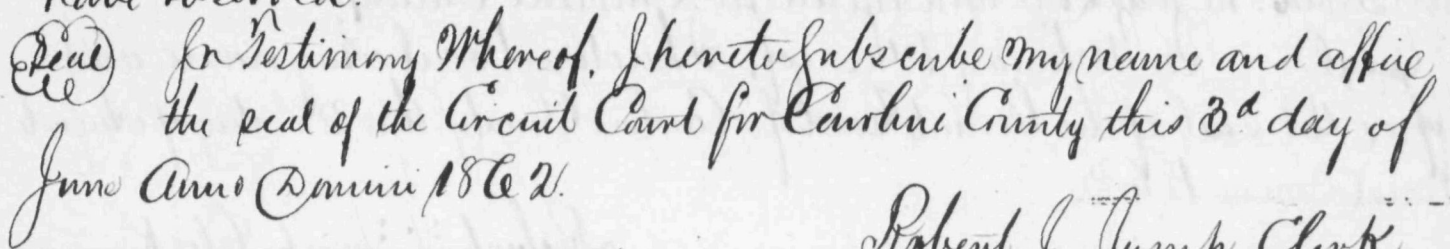 Seal In Testimony Whereof. I hereto Subscribe my name and affixe
the seal of the Circuit Court for Caroline County this 3d day of
June Anno Domini 1862.
Robert J. Jump Clerk